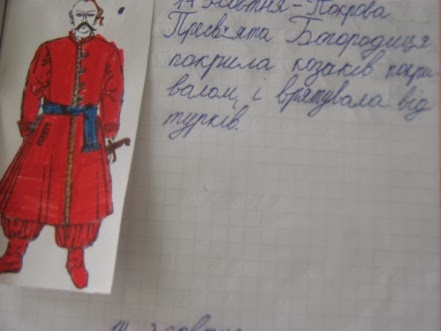 14 жовтня - Покрова
Пресвята Богородиця
покрила козаків покри-
валом, і врятувала від
турків.
14 жовтня